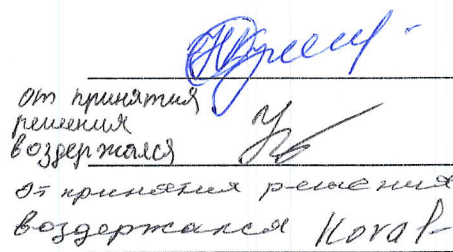 от принятия
решения
воздержался
от принятия решения
воздержался